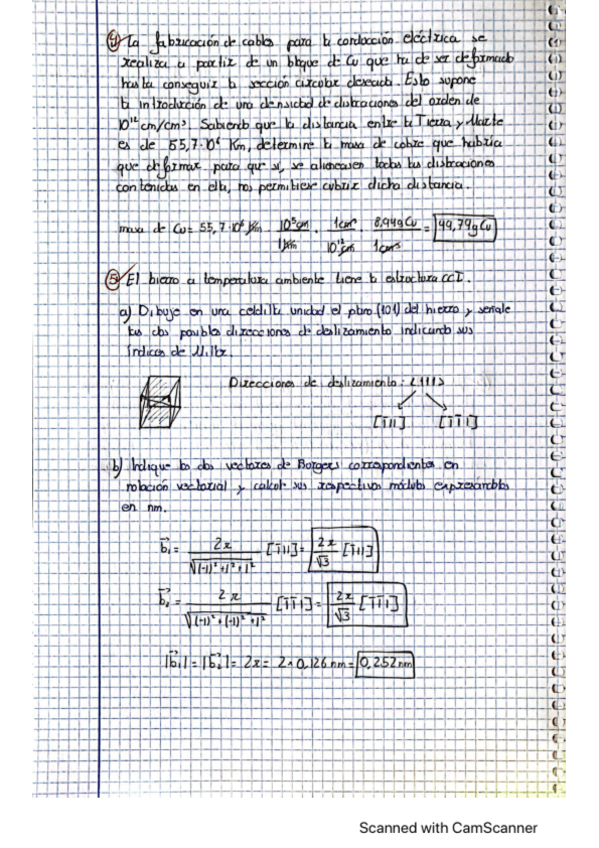 4) La fabricación de cables para la conducción eléctrica se
realiza a partir de un bloque de Cu que ha de ser deformado
hasta conseguir la sección circular deseada. Esto supone
la introducción de una densidad de dislocaciones del orden de
10¹² cm/cm³. Sabiendo que la distancia entre la Tierra y Marte
es de 55,7·10⁶ Km, determine la masa de cobre que habría
que deformar para que si, se alineasen todas las dislocaciones
contenidas en ella, nos permitiese cubrir dicha distancia.
masa de Cu = 55,7·10⁶ Km · 10⁵cm/1Km · 1cm³/10¹²cm · 8,94g Cu/1cm³ = 49,79g Cu
5) El hierro a temperatura ambiente tiene la estructura CCI.
a) Dibuje en una celdilla unidad el plano (101) del hierro y señale
las dos posibles direcciones de deslizamiento indicando sus
índices de Miller.
Direcciones de deslizamiento: <111>
[1̄11] [1̄1̄1]
b) Indique los dos vectores de Burgers correspondientes en
notación vectorial y calcule sus respectivos módulos expresándolos
en nm.
b⃗₁ = 2r/√((-1)²+1²+1²) [1̄11] = 2r/√3 [1̄11]
b⃗₂ = 2r/√((-1)²+(-1)²+1²) [1̄1̄1] = 2r/√3 [1̄1̄1]
|b⃗₁| = |b⃗₂| = 2r = 2·0,126 nm = 0,252 nm
Scanned with CamScanner